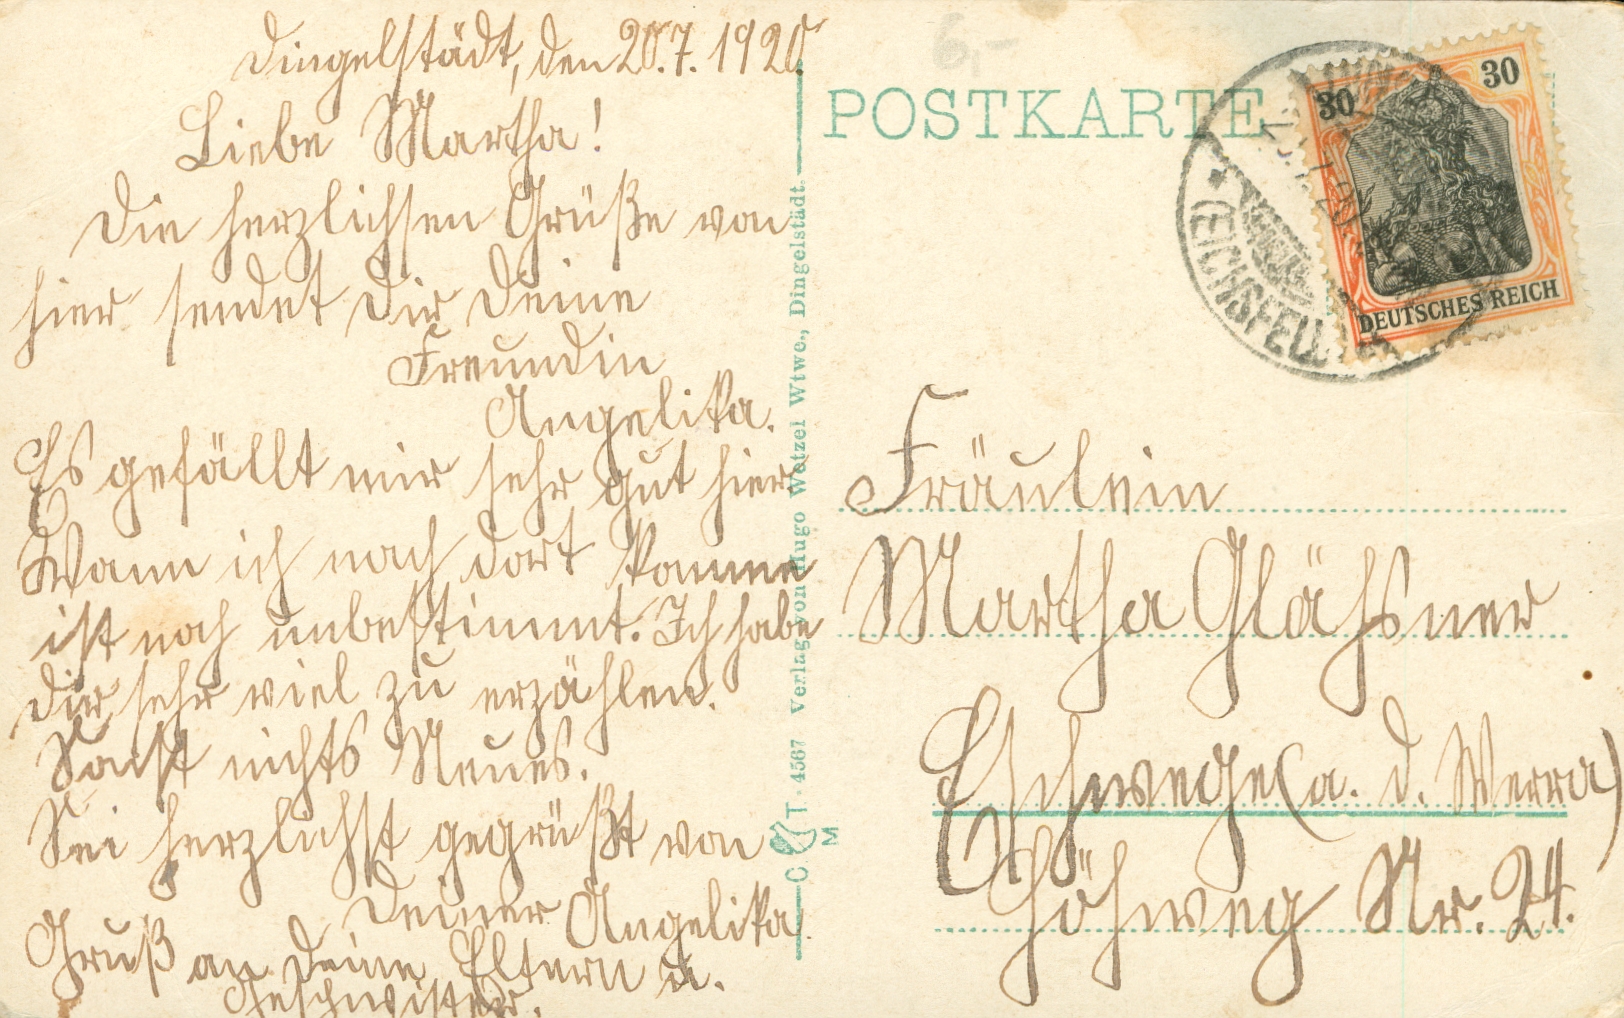 Dingelstädt, den 20.7.1920.
Liebe Martha!
Die herzlichsen Grüße von
hier sendet Dir Deine
Freundin
Angelika.
Es gefällt mir sehr gut hier.
Wann ich nach dort komme
ist noch unbestimmt. Ich habe
dir sehr viel zu erzählen.
Sonst nichts Neues.
Sei herzlichst gegrüßt von
Deiner Angelika.
Gruß an Deine Eltern u.
Geschwister.
C T M · 4567 Verlag von Hugo Wetzel Wtwe., Dingelstädt.
POSTKARTE
6,-
30 30
DEUTSCHES REICH
(EICHSFELD)
Fräulein
Martha Gläßner
Eschwege (a. d. Werra)
Höhweg Nr. 24.